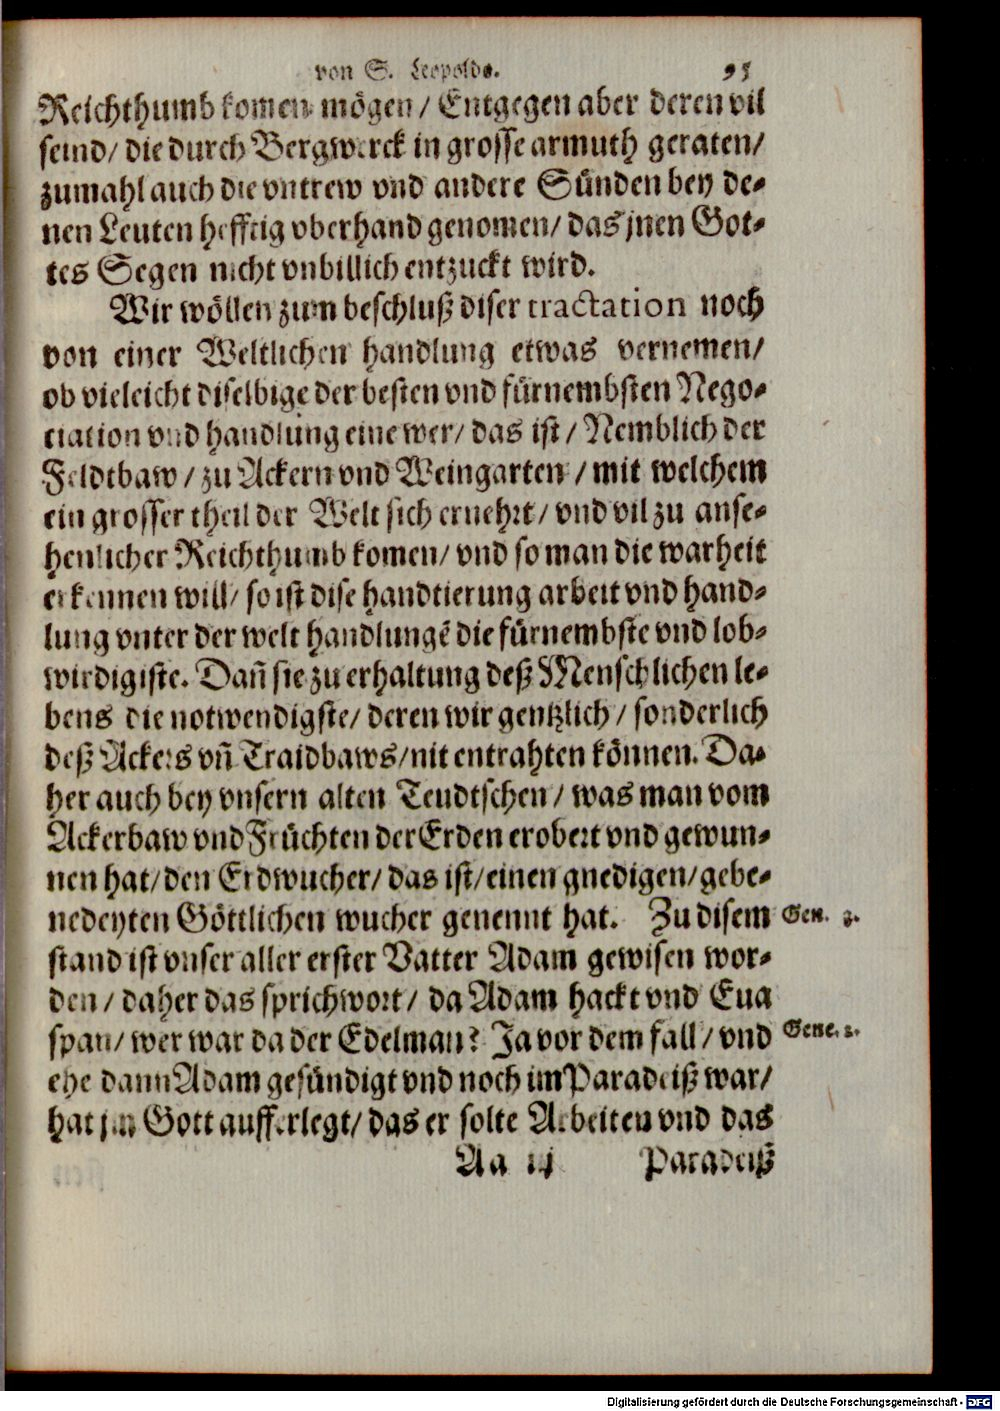 von S. Leopoldo. 95
Reichthumb komen mögen / Entgegen aber deren vil
seind / die durch Bergwerck in grosse armuth geraten /
zumahl auch die vntrew vnd andere Sünden bey de-
nen Leuten hefftig vberhand genomen / das jnen Got-
tes Segen nicht vnbillich entzuckt wird.
Wir wöllen zum beschluß diser tractation noch
von einer Weltlichen handlung etwas vernemen /
ob vieleicht diselbige der besten vnd fürnembsten Nego-
ciation vnd handlung eine wer / das ist / Nemblich der
Feldtbaw / zu Ackern vnd Weingarten / mit welchem
ein grosser theil der Welt sich ernehrt / vnd vil zu anse-
henlicher Reichthumb komen / vnd so man die warheit
erkennen will / so ist dise handtierung arbeit vnd hand-
lung vnter der welt handlungē die fürnembste vnd lob-
wirdigiste. Dañ sie zu erhaltung deß Menschlichen le-
bens die notwendigste / deren wir gentzlich / sonderlich
deß Ackers vñ Traidbaws / nit entrahten können. Da-
her auch bey vnsern alten Teudtschen / was man vom
Ackerbaw vnd Früchten der Erden erobert vnd gewun-
nen hat / den Erdwucher / das ist / einen gnedigen / gebe-
nedeyten Göttlichen wucher genennt hat. Zu disem Gen. 3.
stand ist vnser aller erster Vatter Adam gewisen wor-
den / daher das sprichwort / da Adam hackt vnd Eua
span / wer war da der Edelman? Ja vor dem fall / vnd Gene. 2.
ehe dann Adam gesündigt vnd noch im Paradeiß war /
hat jm Gott aufferlegt / das er solte Arbeiten vnd das
Aa ij Paradeiß
Digitalisierung gefördert durch die Deutsche Forschungsgemeinschaft - DFG